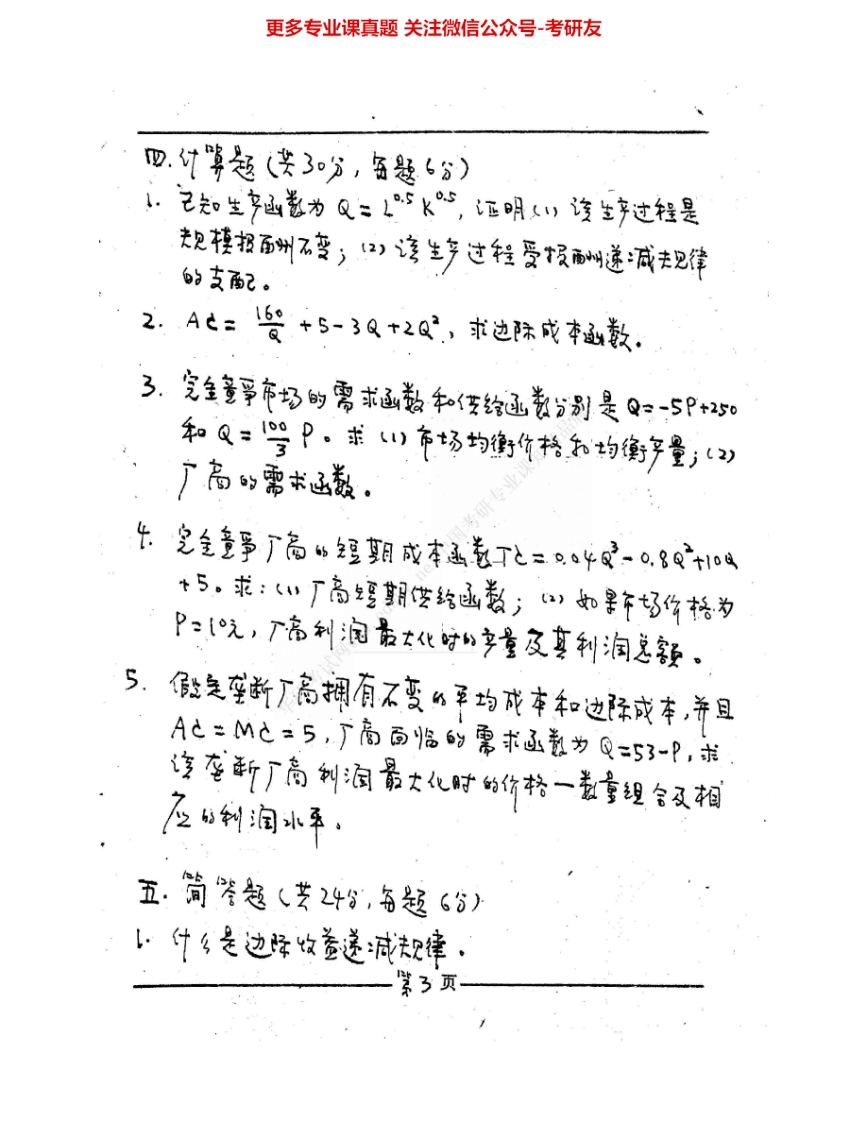 更多专业课真题 关注微信公众号-考研友
四.计算题(共30分,每题6分)
1. 已知生产函数为 Q = L^0.5 K^0.5, 证明(1) 该生产过程是
规模报酬不变; (2) 该生产过程受报酬递减规律
的支配。
2. AC = 160/Q + 5 - 3Q + 2Q², 求边际成本函数.
3. 完全竞争市场的需求函数和供给函数分别是 Q = -5P+250
和 Q = 100/3 P。求 (1) 市场均衡价格和均衡产量; (2)
厂商的需求函数。
4. 完全竞争厂商的短期成本函数TC = 0.04Q³ - 0.8Q² + 10Q
+5。求: (1) 厂商短期供给函数; (2) 如果市场价格为
P=10元, 厂商利润最大化时的产量及其利润总额。
5. 假定垄断厂商拥有不变的平均成本和边际成本, 并且
AC = MC = 5, 厂商面临的需求函数为 Q=53-P, 求
该垄断厂商利润最大化时的价格一数量组合及相
应的利润水平.
五. 简答题(共24分, 每题6分)
1. 什么是边际收益递减规律.
第3页